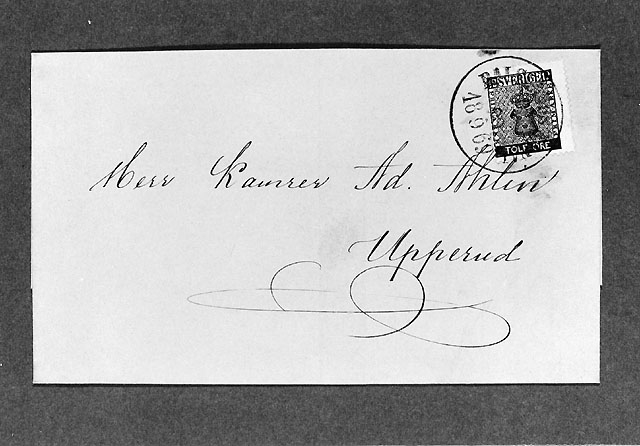 SVERIGE
TOLF ÖRE
Herr Kamrer Ad. Ahlin
Upperud